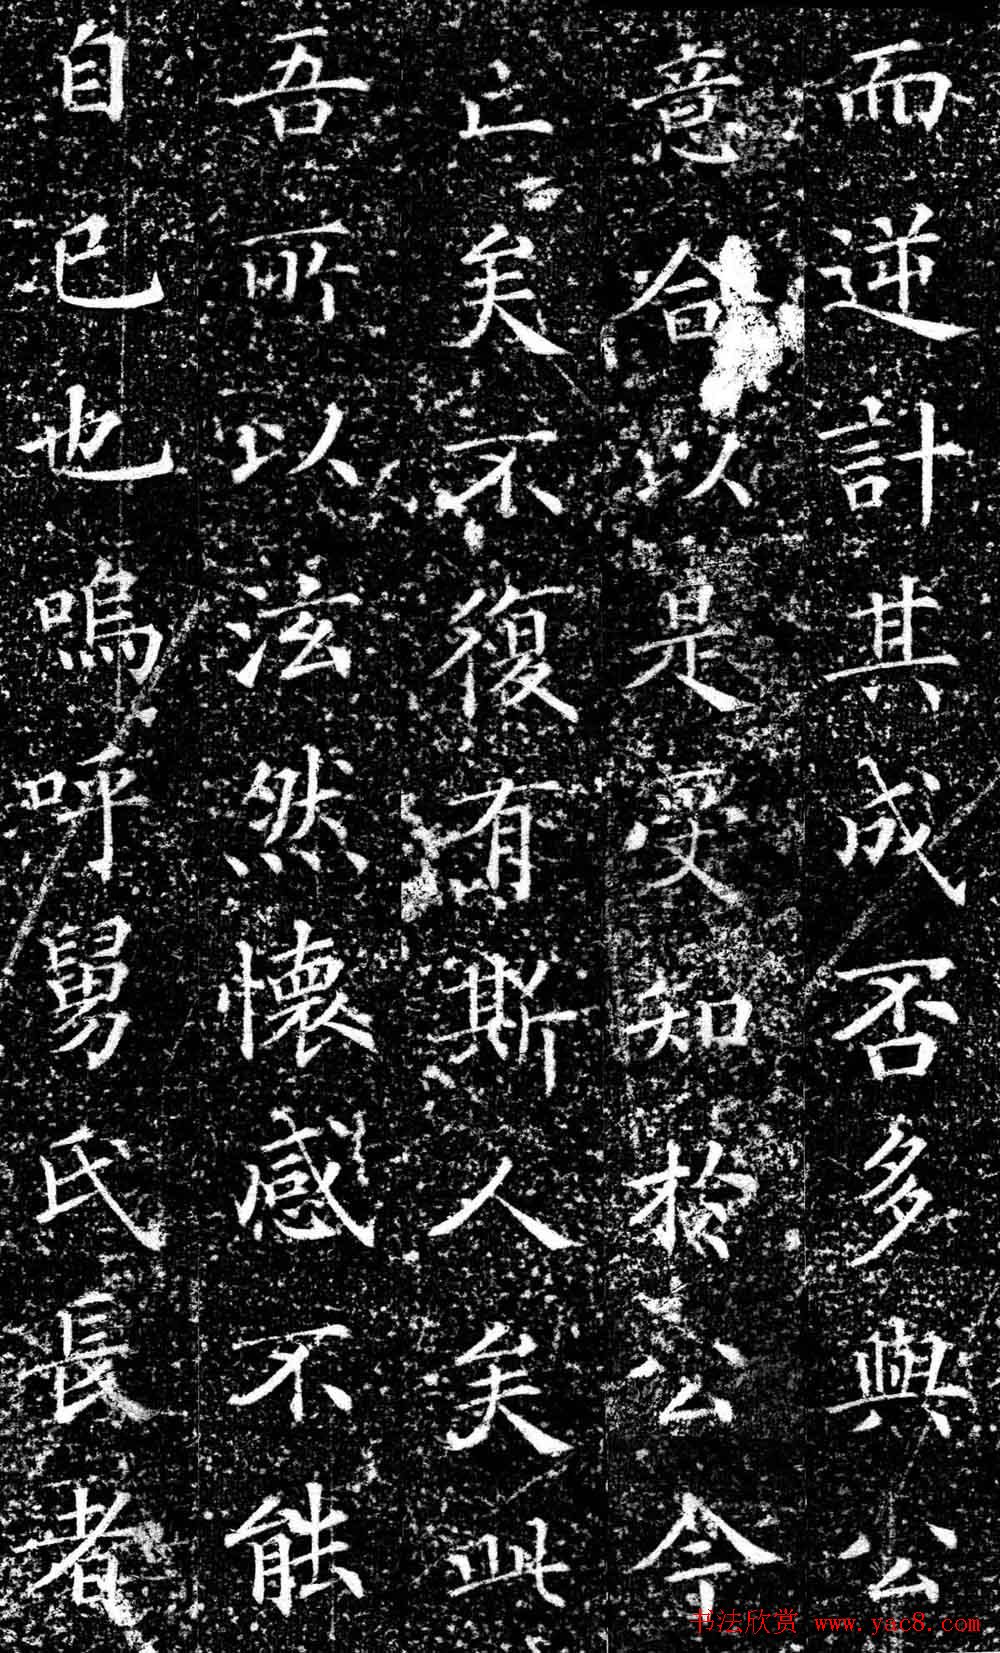 而逆計其成否多與公
意合以是受知於公今
止矣不復有斯人矣此
吾所以泫然懷感不能
自已也嗚呼舅氏長者
书法欣赏 www.yac8.com